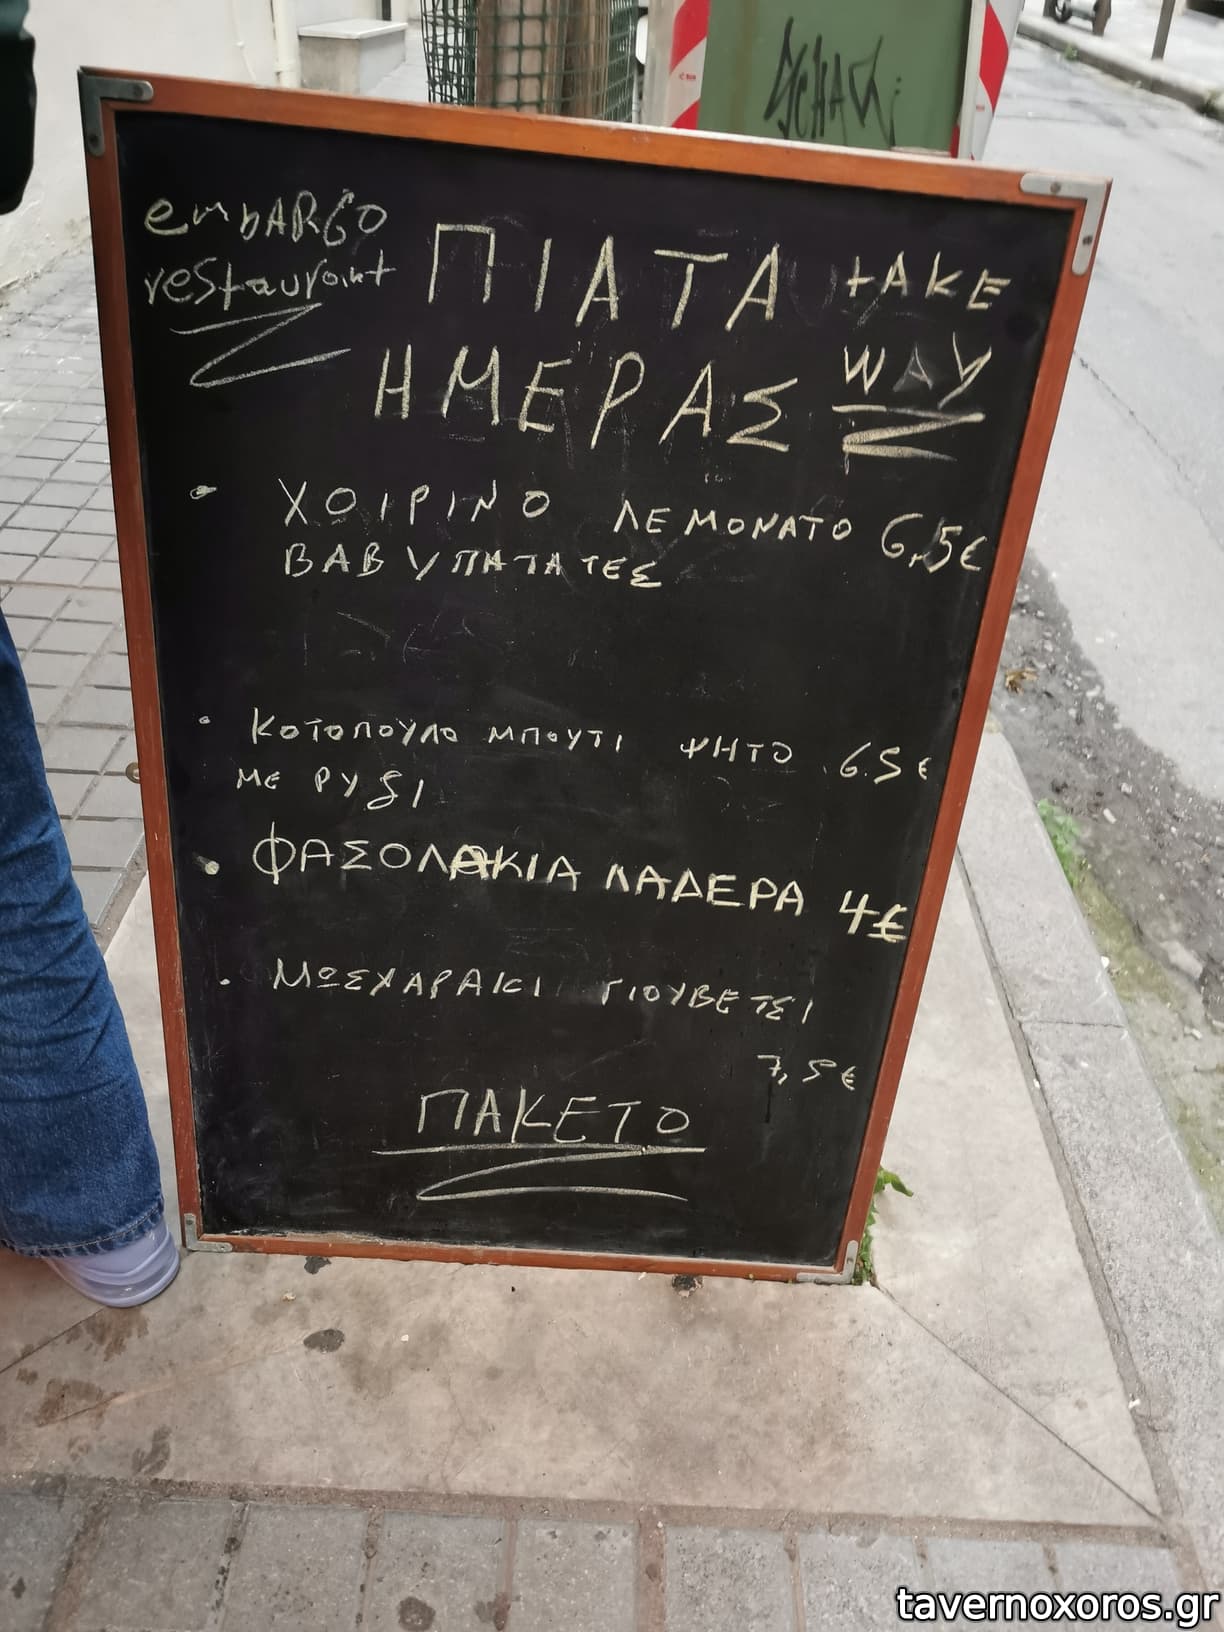 embARGO
restaurant
ΠΙΑΤΑ
ΗΜΕΡΑΣ
tAKE
WAY
• ΧΟΙΡΙΝΟ ΛΕΜΟΝΑΤΟ 6,5€
ΒΑΒΥ ΠΑΤΑΤΕΣ
• ΚΟΤΟΠΟΥΛΟ ΜΠΟΥΤΙ ΨΗΤΟ 6.5€
ΜΕ ΡΥΖΙ
• ΦΑΣΟΛΑΚΙΑ ΛΑΔΕΡΑ 4€
• ΜΩΣΧΑΡΑΚΙ ΓΙΟΥΒΕΤΣΙ
7,5€
ΠΑΚΕΤΟ
tavernoxoros.gr